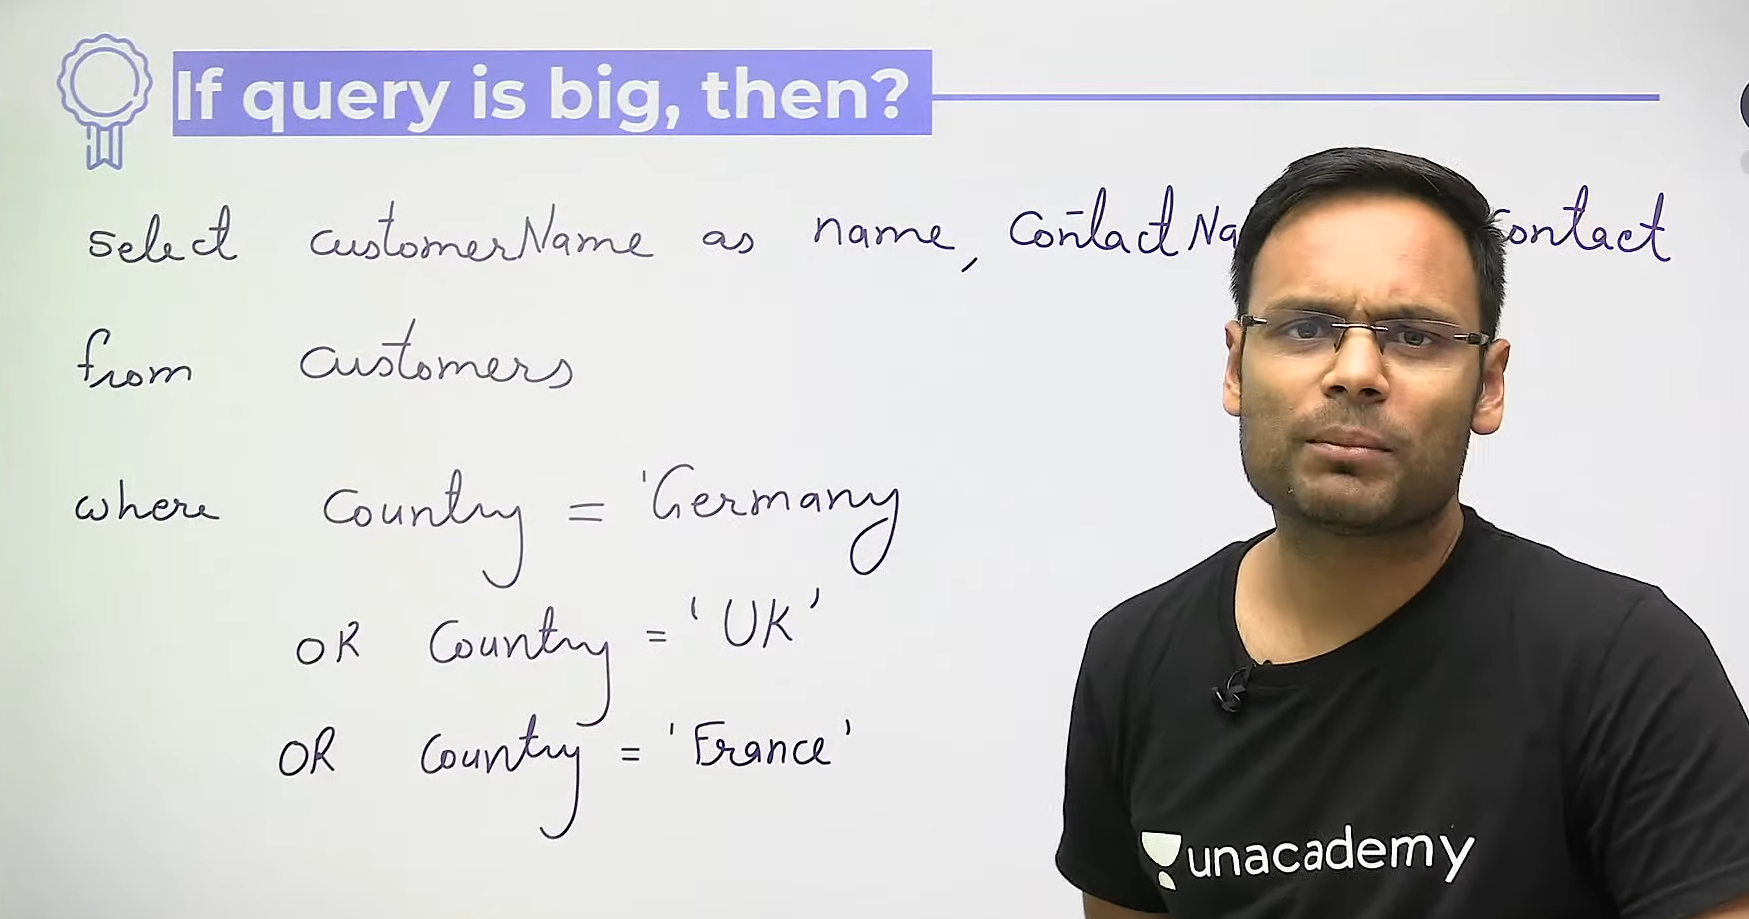 If query is big, then?
select customerName as name, ContactNa ontact
from customers
where country = 'Germany
OR Country = 'UK'
OR Country = 'France'
unacademy